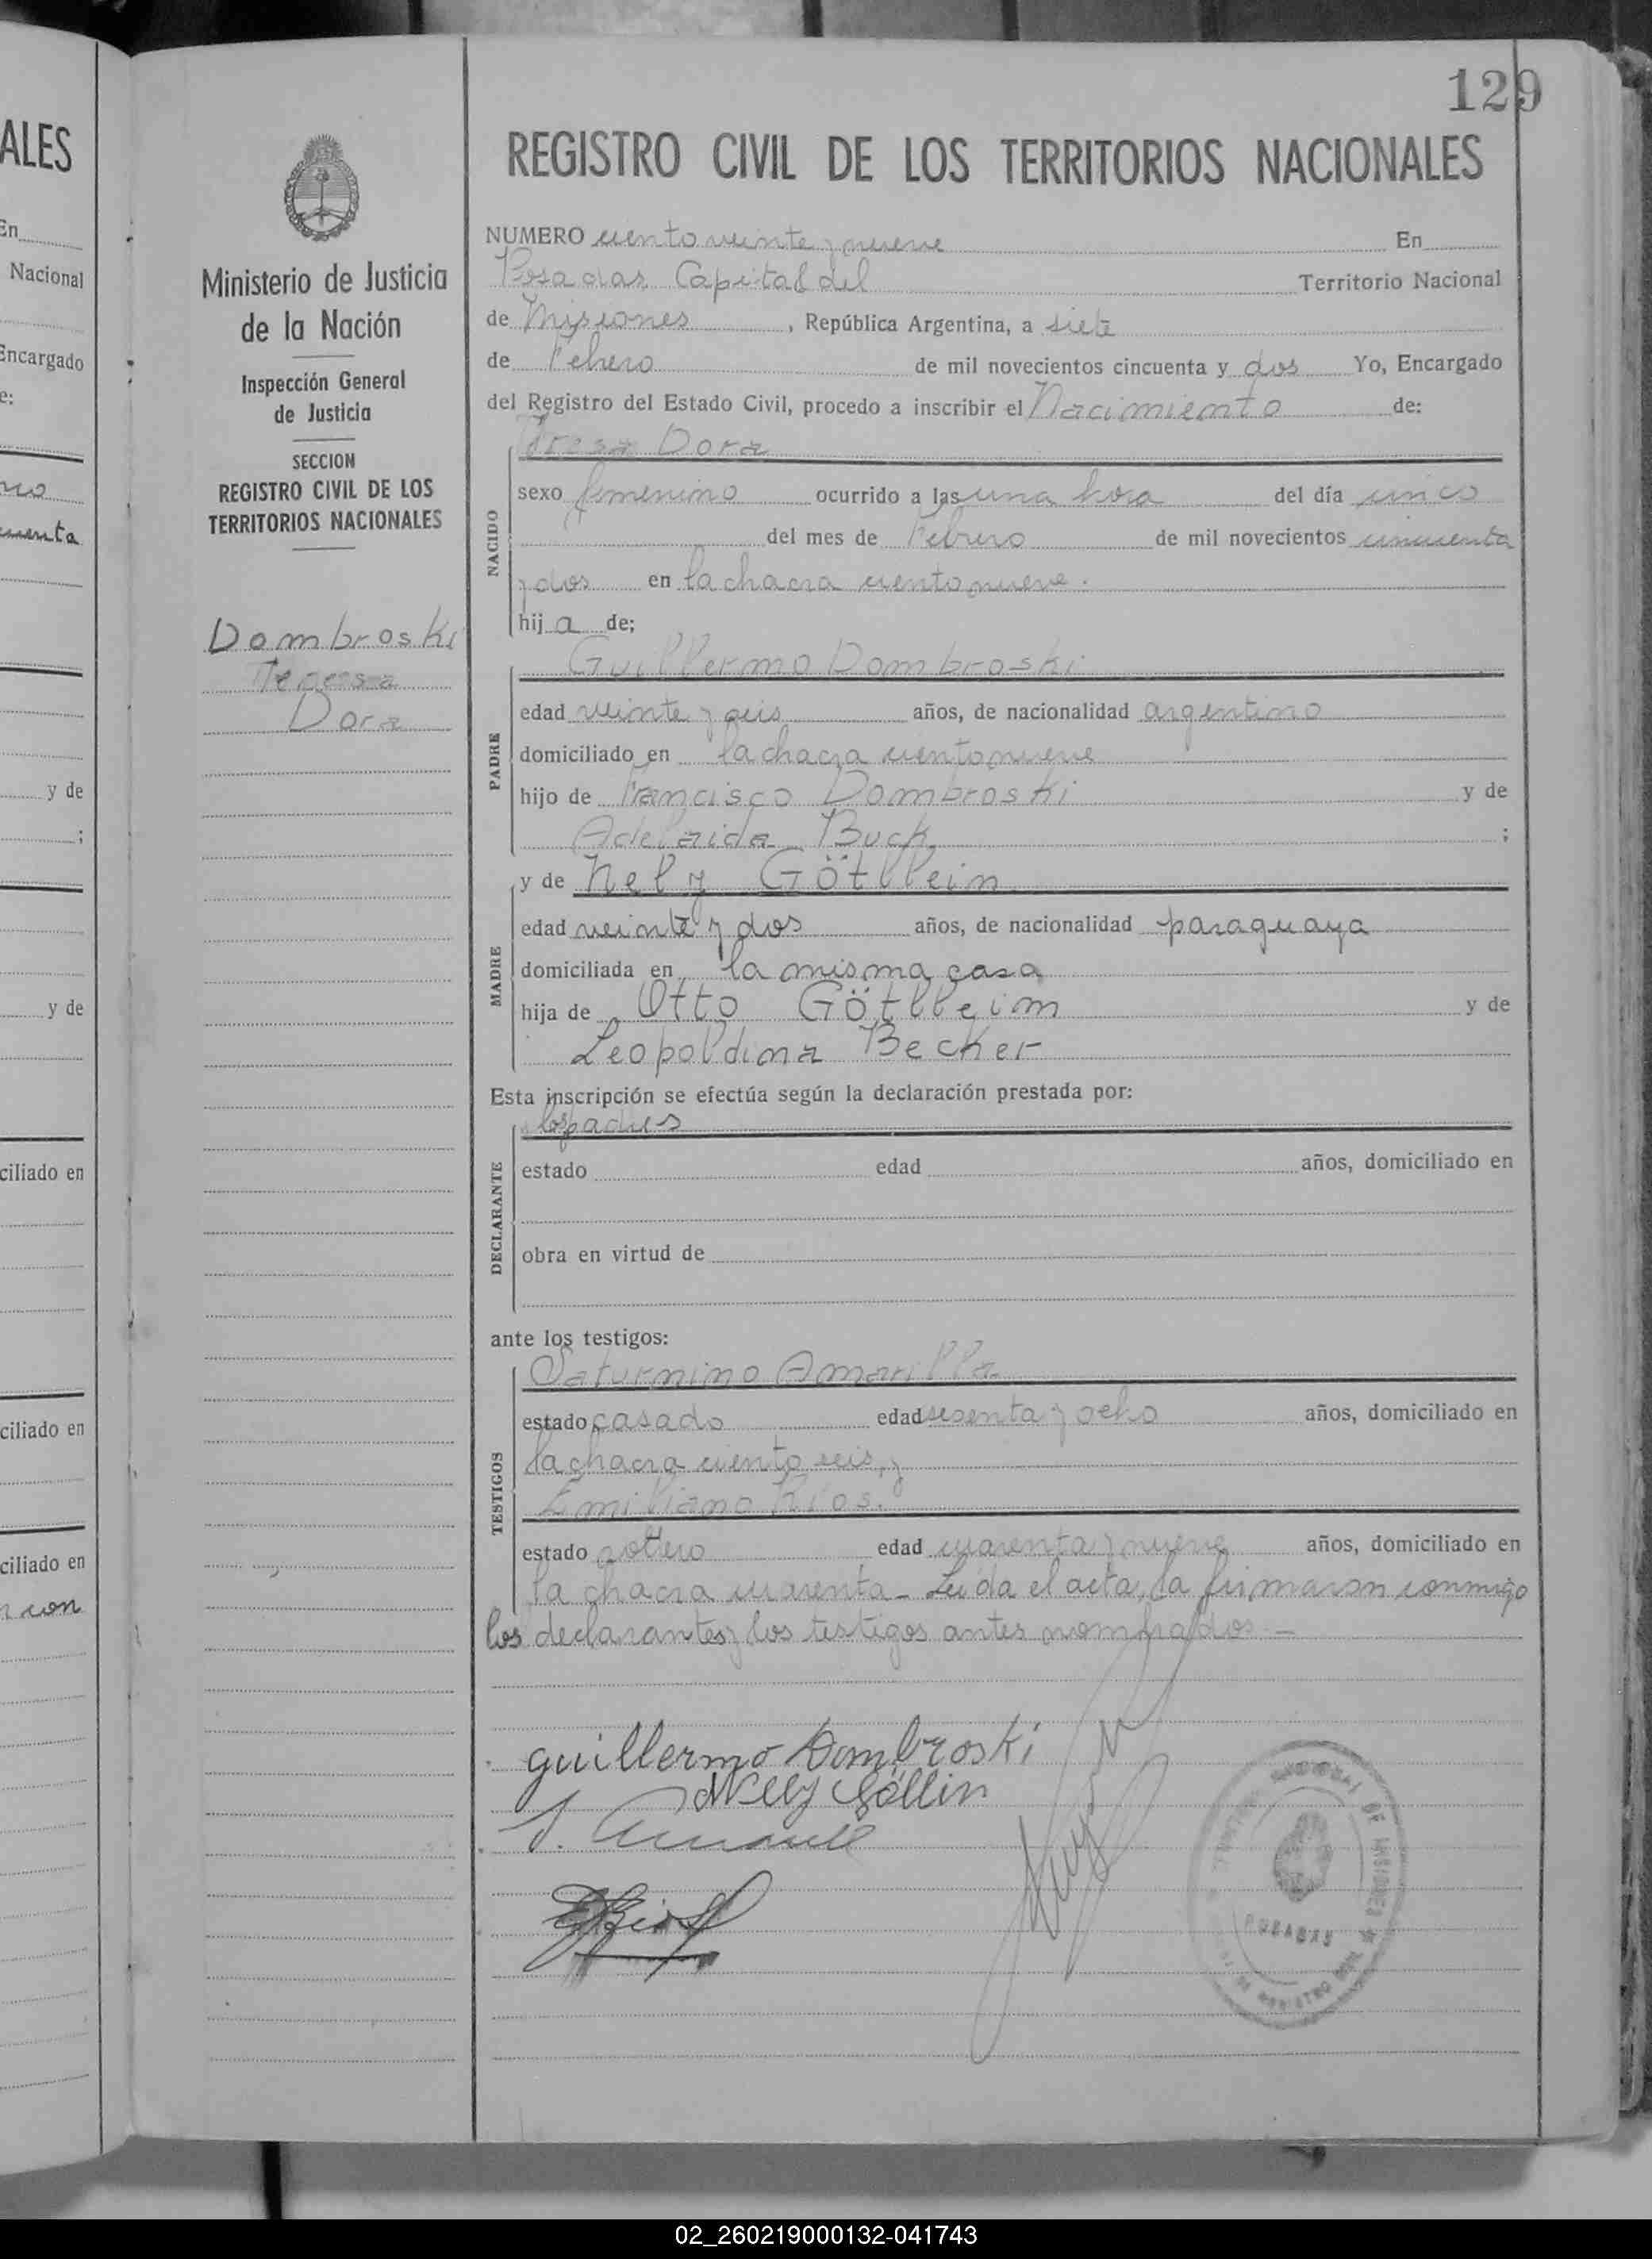 129
ALES
REGISTRO CIVIL DE LOS TERRITORIOS NACIONALES
En
Nacional
Encargado
e:
y de
;
y de
ciliado en
ciliado en
ciliado en
con
Ministerio de Justicia
de la Nación
Inspección General
de Justicia
SECCION
REGISTRO CIVIL DE LOS
TERRITORIOS NACIONALES
Dombroski
Teresa
Dora
NUMERO ciento veinte y nueve En
Posadas Capital del Territorio Nacional
de Misiones, República Argentina, a siete
de Febrero de mil novecientos cincuenta y dos Yo, Encargado
del Registro del Estado Civil, procedo a inscribir el Nacimiento de:
Teresa Dora
NACIDO
sexo femenino ocurrido a las una hora del día cinco
del mes de Febrero de mil novecientos cincuenta
y dos en la chacra ciento nueve.
hija de;
Guillermo Dombroski
PADRE
edad veinte y seis años, de nacionalidad argentino
domiciliado en la chacra ciento nueve
hijo de Francisco Dombroski y de
Adelaida Buck;
y de Nely Götllein
MADRE
edad veinte y dos años, de nacionalidad paraguaya
domiciliada en la misma casa
hija de Otto Götlleim y de
Leopoldina Becker
Esta inscripción se efectúa según la declaración prestada por:
los padres
DECLARANTE
estado edad años, domiciliado en
obra en virtud de
ante los testigos:
Saturnino Amarilla
TESTIGOS
estado casado edad sesenta y ocho años, domiciliado en
la chacra ciento seis, y
Emiliano Rios.
estado soltero edad cuarenta y nueve años, domiciliado en
la chacra cuarenta_ Leida el acta, la firmaron conmigo
los declarantes y los testigos antes nombrados_
Guillermo Dombroski
Nely Göllin
E Rios
POSADAS
02_260219000132-041743